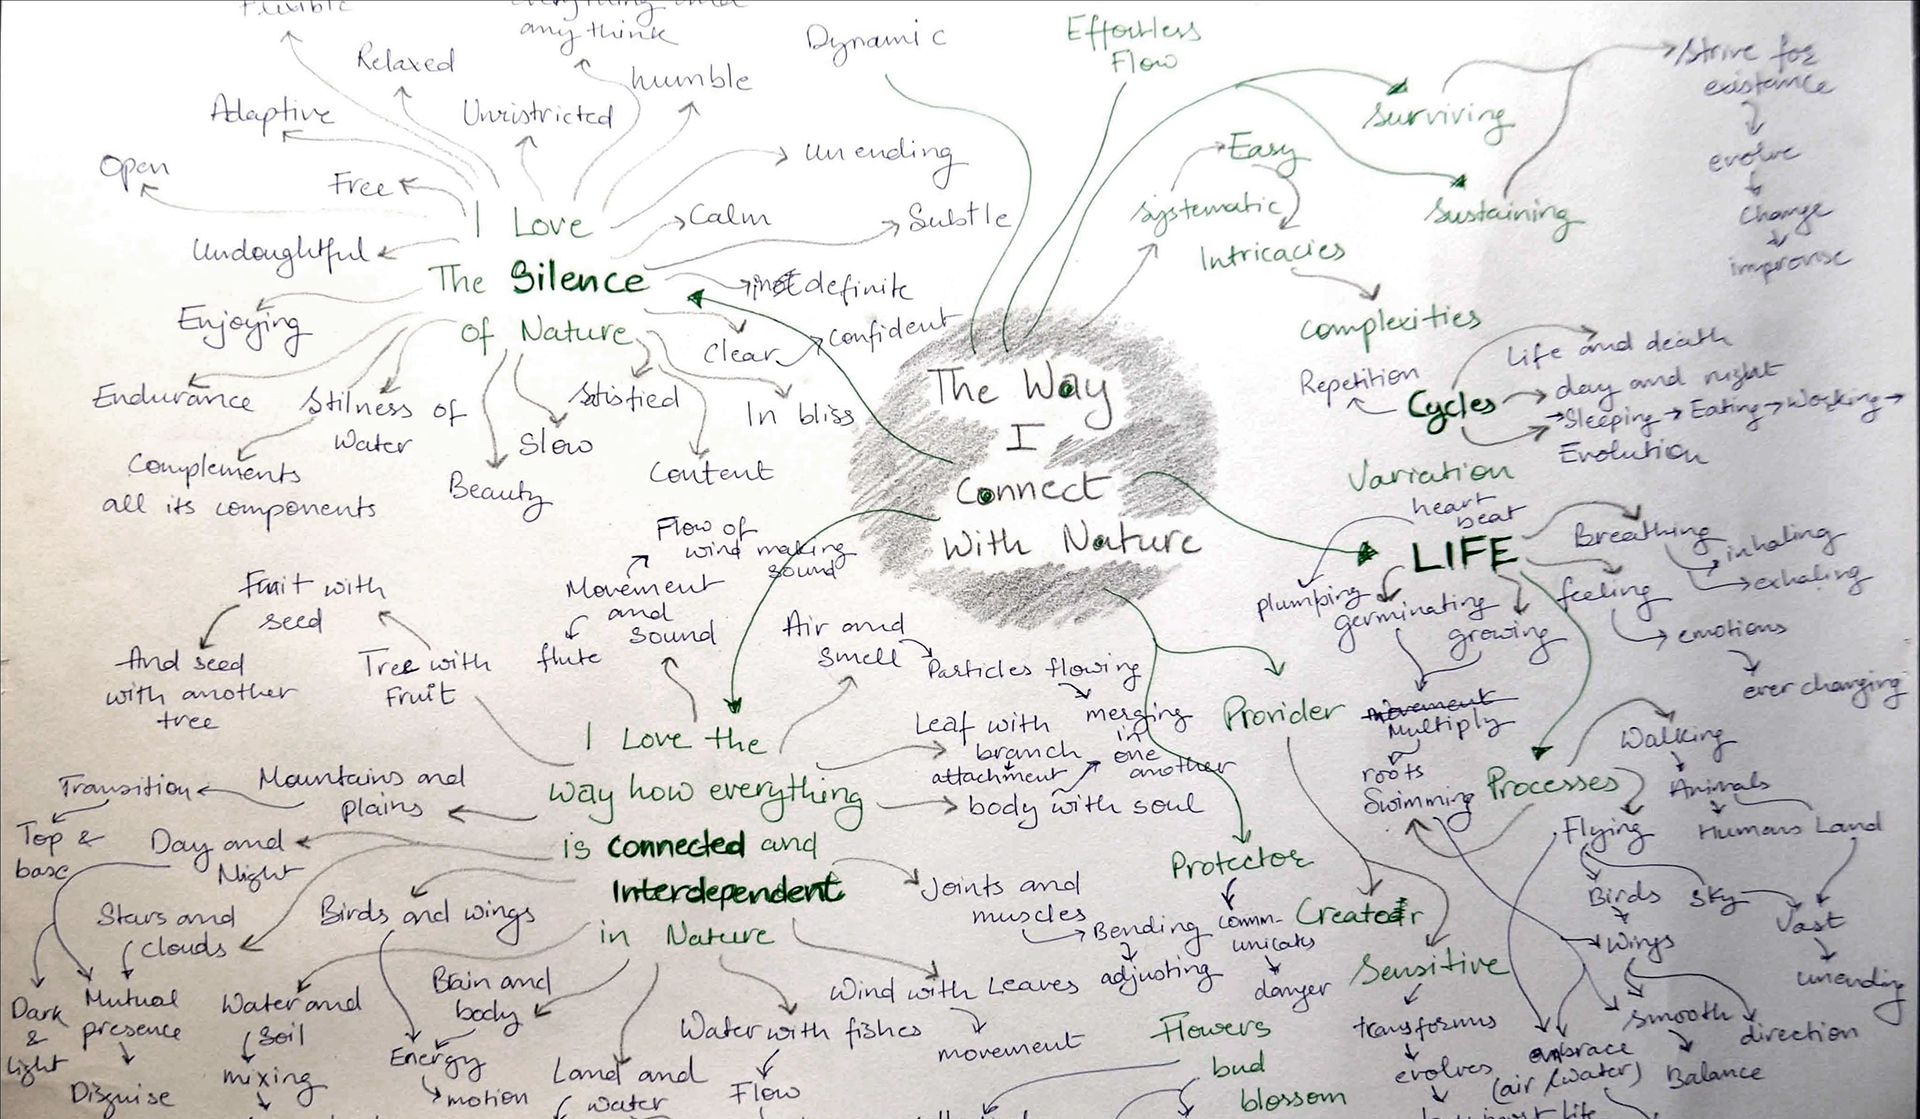 Flexible
everything and
any think
Relaxed
humble
Adaptive
Unristricted
Open
Free
Unending
I Love
The Silence
of Nature
Calm
Subtle
Undoughtful
not definite
Enjoying
Clear
Confident
Endurance
Stilness of
Water
Satisfied
In bliss
Slow
Complements
all its components
Beauty
Content
Dynamic
Effortless
Flow
Surviving
Sustaining
Strive for
existence
evolve
Change
improvise
Easy
Systematic
Intricacies
Complexities
The Way
I
Connect
With Nature
Repetition
Cycles
Life and death
day and night
Sleeping → Eating → Working →
Evolution
Variation
heart
beat
LIFE
Breathing
inhaling
exhaling
plumping
germinating
growing
feeling
emotions
ever changing
movement
Multiply
roots
Swimming
Processes
Walking
Animals
Humans Land
Flying
Birds
Sky
Vast
unending
Wings
Smooth
direction
Balance
embrace
(air/water)
Flow of
wind making
sound
Movement
and
Sound
flute
Air and
smell
Particles flowing
merging
in
one
another
Fruit with
seed
And seed
with another
tree
Tree with
Fruit
I Love the
way how everything
is connected and
Interdependent
in Nature
Leaf with
branch
attachment
body with soul
Transition
Mountains and
plains
Top &
base
Day and
Night
Stars and
clouds
Birds and wings
Dark
&
light
Mutual
presence
Disguise
Water and
Soil
mixing
Brain and
body
Energy
motion
Land and
water
Water with fishes
Flow
Wind with Leaves
movement
Joints and
muscles
Bending
adjusting
Provider
Protector
comm-
unicates
danger
Creator
Sensitive
transforms
evolves
Flowers
bud
blossom